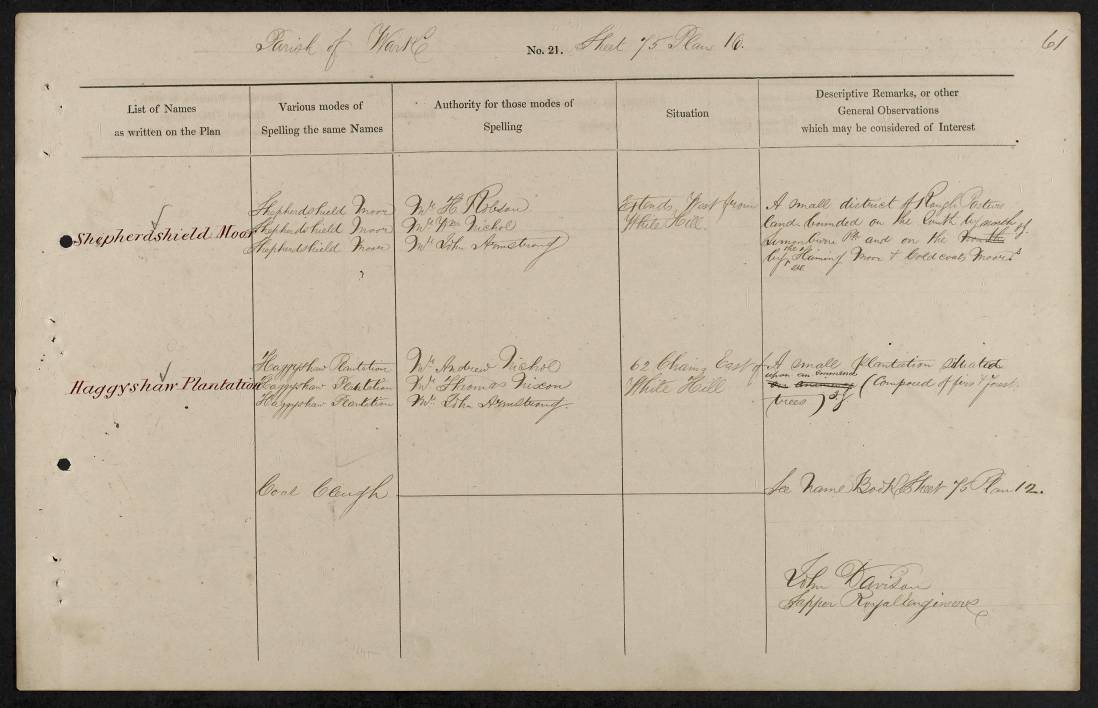 Parish of Wark
No. 21.
Sheet 75 Plan 16.
61
List of Names
as written on the Plan
Various modes of
Spelling the same Names
Authority for those modes of
Spelling
Situation
Descriptive Remarks, or other
General Observations
which may be considered of Interest
Shepherdshield Moor
Shepherdshield Moor
Shepherdshield Moor
Shepherdshield Moor
Mr. H. Robson
Mr. Wm Nichol
Mr. John Armstrong
Extends West from
White Hill.
A small district of Rough Pasture
land bounded on the South by
Simonburn Ph. and on the
by Haining Moor & Coldcoats Moor
Haggyshaw Plantation
Haggyshaw Plantation
Haggyshaw Plantation
Haggyshaw Plantation
Mr. Andrew Nichol
Mr. Thomas Nixon
Mr. John Armstrong.
62 Chains East of
White Hill
A small plantation situated
upon an eminence
(Composed of firs & forest
trees)
Coal Cleugh
See Name Book Sheet 75 Plan 12.
John Davison
Sapper Royal Engineers